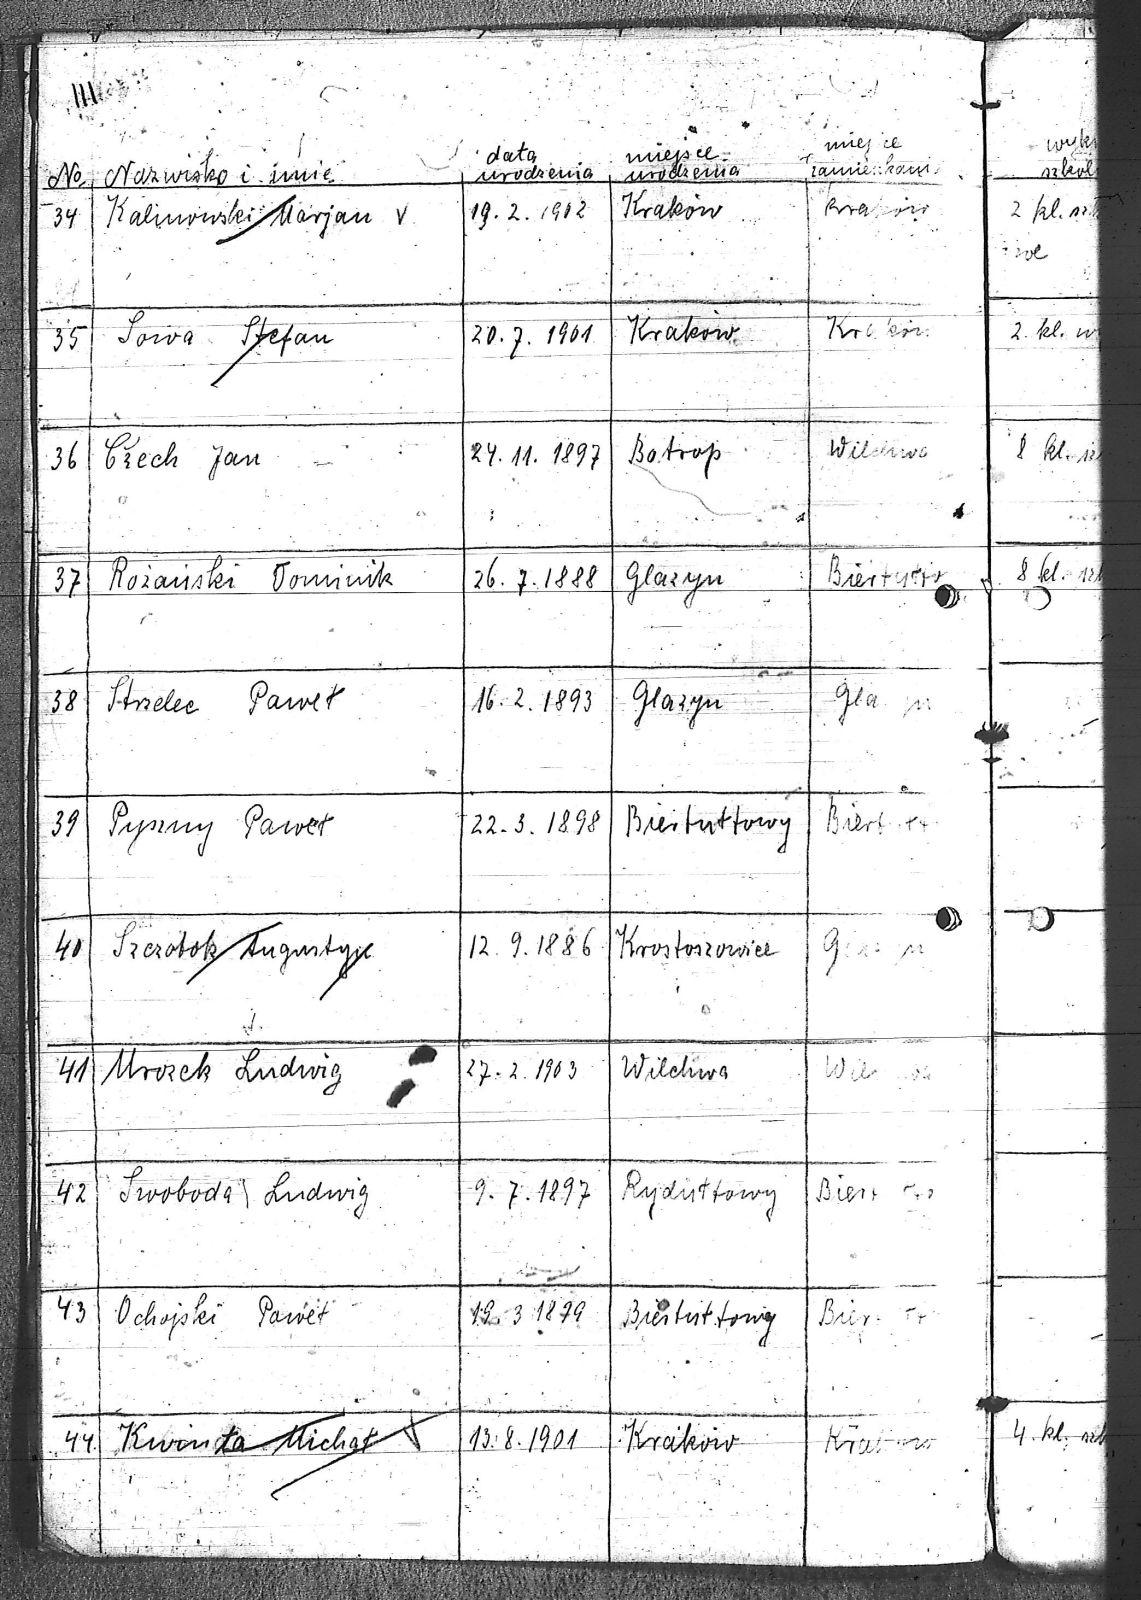 III
No Nazwisko i imię data urodzenia miejsce urodzenia miejsce zamieszkani
34 Kalinowski Marjan V 19. 2. 1902 Kraków Kraków 2 kl.
35 Sowa Stefan 20. 7. 1901 Kraków Kraków 2. kl. w
36 Czech Jan 24. 11. 1897 Botrop Wilchwa 8 kl.
37 Rożański Dominik 26. 7. 1888 Glazyn Biertułto 8 kl.
38 Strzelec Paweł 16. 2. 1893 Glazyn Gla yn
39 Pyszny Paweł 22. 3. 1898 Biertułtowy Biert
40 Szczotok Augustyn 12. 9. 1886 Krostoszowice
41 Mrozek Ludwig 27. 2. 1903 Wilchwa Wil wa
42 Swoboda Ludwig 9. 7. 1897 Rydułtowy Biert
43 Ochojski Paweł 19. 3 1879 Biertułtowy Bier
44 Kwinta Michał V 13. 8. 1901 Kraków Kraków 4. kl.